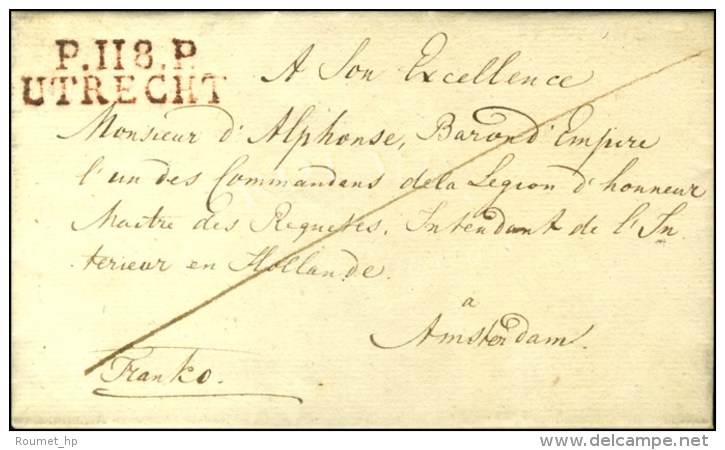 P.118.P.
UTRECHT
A Son Excellence
Monsieur d'Alphonse, Baron d'Empire
l'un des Commandans de la Legion d'honneur
Maitre des Requetes, Intendant de l'In
terieur en Hollande.
a
Amsterdam.
Franko.
Roumet_hp
www.delcampe.net